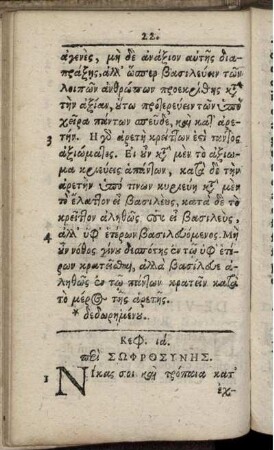 22.
ἀγενὲς, μὴ δὲ ἀνάξιον αὐτῆς δια-
πράξῃς. ἀλλ' ὥσπερ βασιλεύειν τῶν
λοιπῶν ἀνθρώπων προεκρίθης κατὰ
τὴν ἀξίαν, οὕτω προτερεύειν τῶν ὑπὸ
χεῖρα πάντων σπεῦδε, καὶ κατ' ἀρε-
τήν.
3 Ἡ γὰρ ἀρετὴ κρεῖττων ἐστὶ παντὸς
ἀξιώματος. Εἰ οὖν κατὰ μὲν τὸ ἀξίω-
μα κυριεύεις ἁπάντων, κατὰ δὲ τὴν
ἀρετὴν ὑπό τινων κυριευῃ κατὰ μὲν
τὸ ἔλαττον εἶ βασιλεὺς, κατὰ δὲ τὸ
κρεῖττον ἀληθῶς, οὐκ εἶ βασιλεὺς,
ἀλλ' ὑφ' ἑτέρων βασιλευόμενος. Μὴ
4 οὖν νόθος γένου δεσπότης ἐν τῷ ὑφ' ἑτέ-
ρων κρατεῖσθαι, ἀλλὰ βασίλευε ἀ-
ληθῶς ἐν τῷ πάντων κρατεῖν κατὰ
τὸ μέρος τῆς ἀρετῆς.
* δεδωρημένου.
Κεφ. ιά.
περὶ ΣΩΦΡΟΣΥΝΗΣ.
1 Νίκας σοι καὶ τρόπαια κατ'
ἐχ-